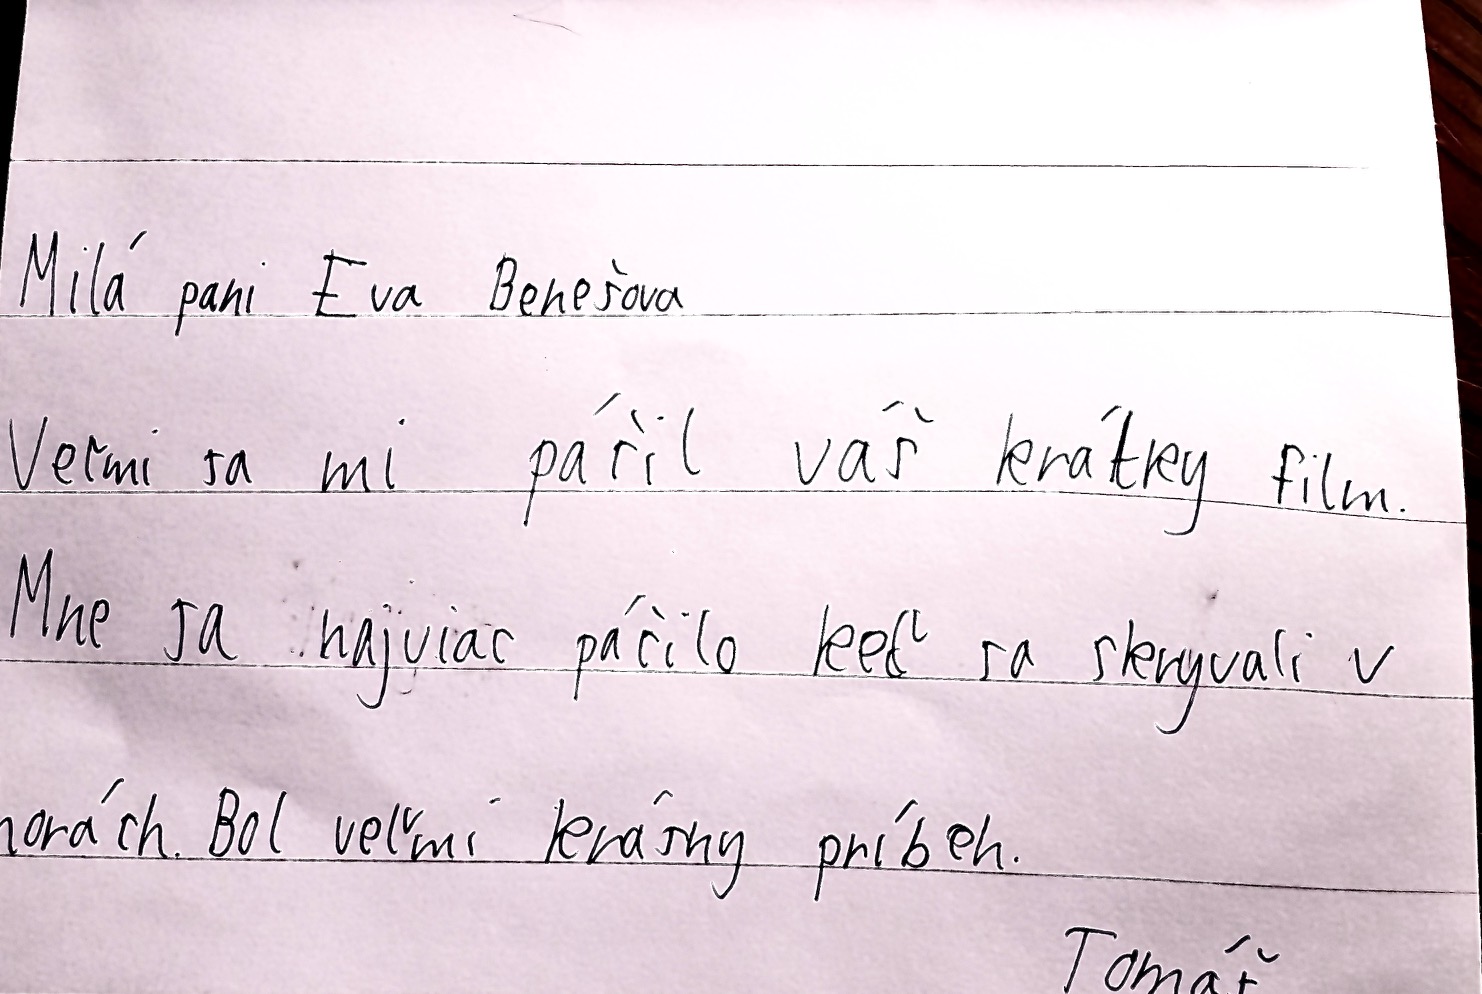 Milá pani Eva Benešova
Veľmi sa mi páčil váš krátky film.
Mne sa najviac páčilo keď sa skrývali v
horách. Bol veľmi krásny príbeh.
Tomáš